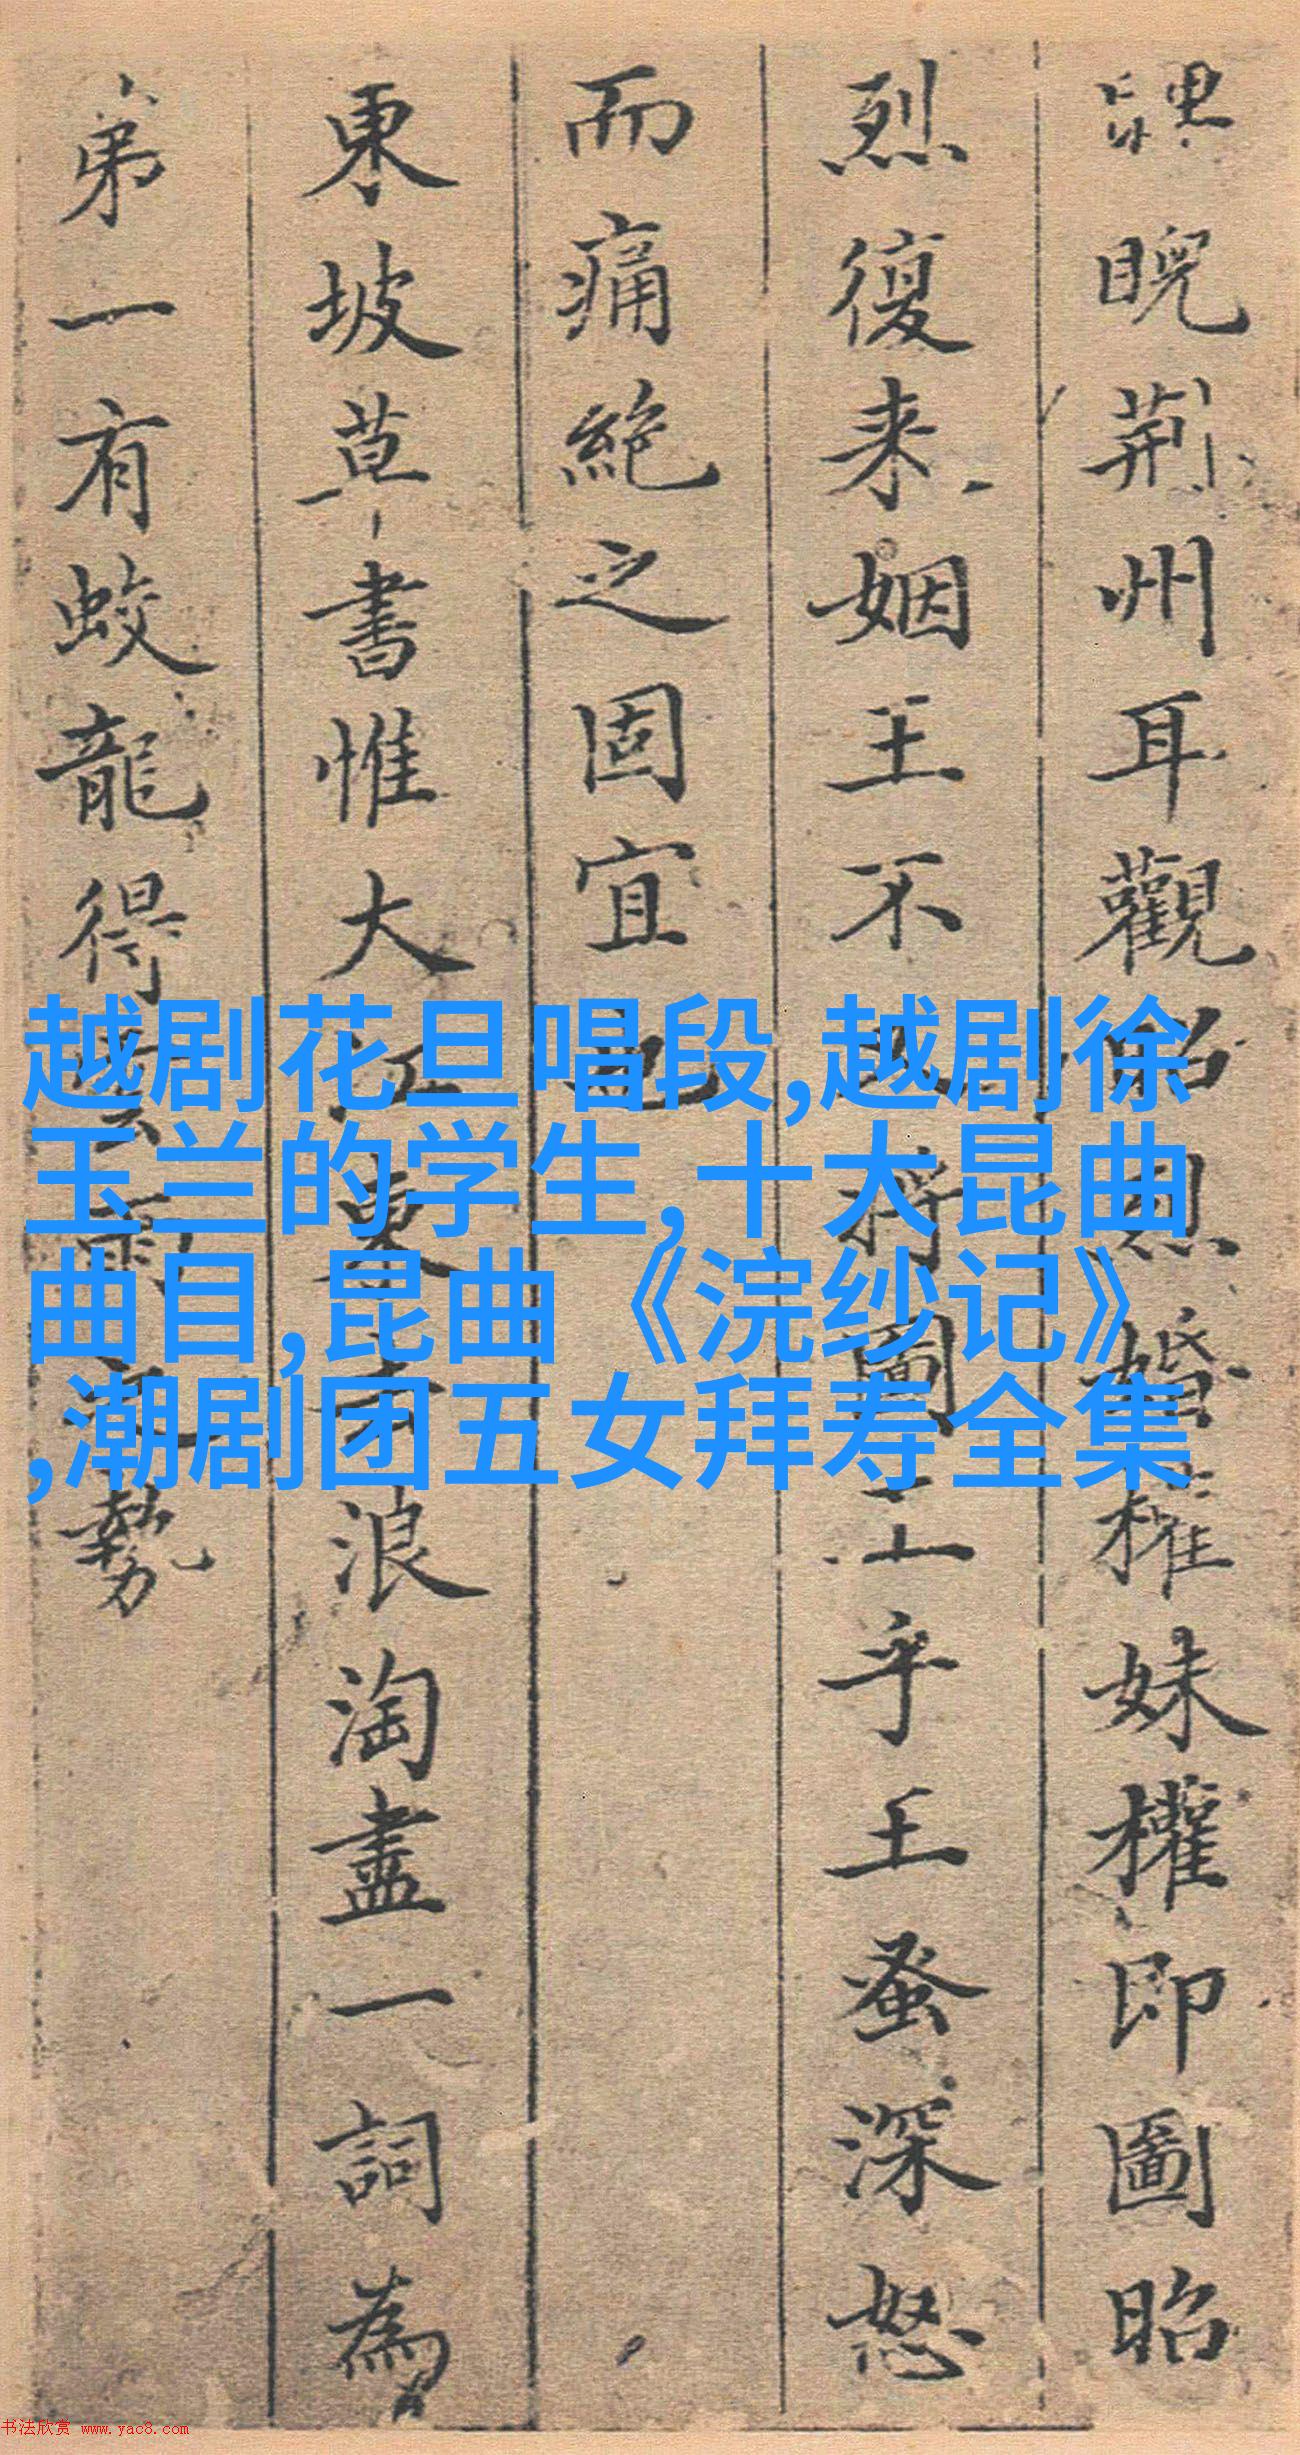 睨荆州耳觀昭烈婚權妹權即圖昭
烈復来姻王不将圖王乎王蚤深怒
而痛絶之固宜也
東坡草書惟大江東去浪淘盡一詞為
弟一有蛟龍得雲雨之勢
越剧花旦唱段,越剧徐
玉兰的学生,十大昆曲
曲目,昆曲《浣纱记》
,潮剧团五女拜寿全集
书法欣赏 www.yac8.com